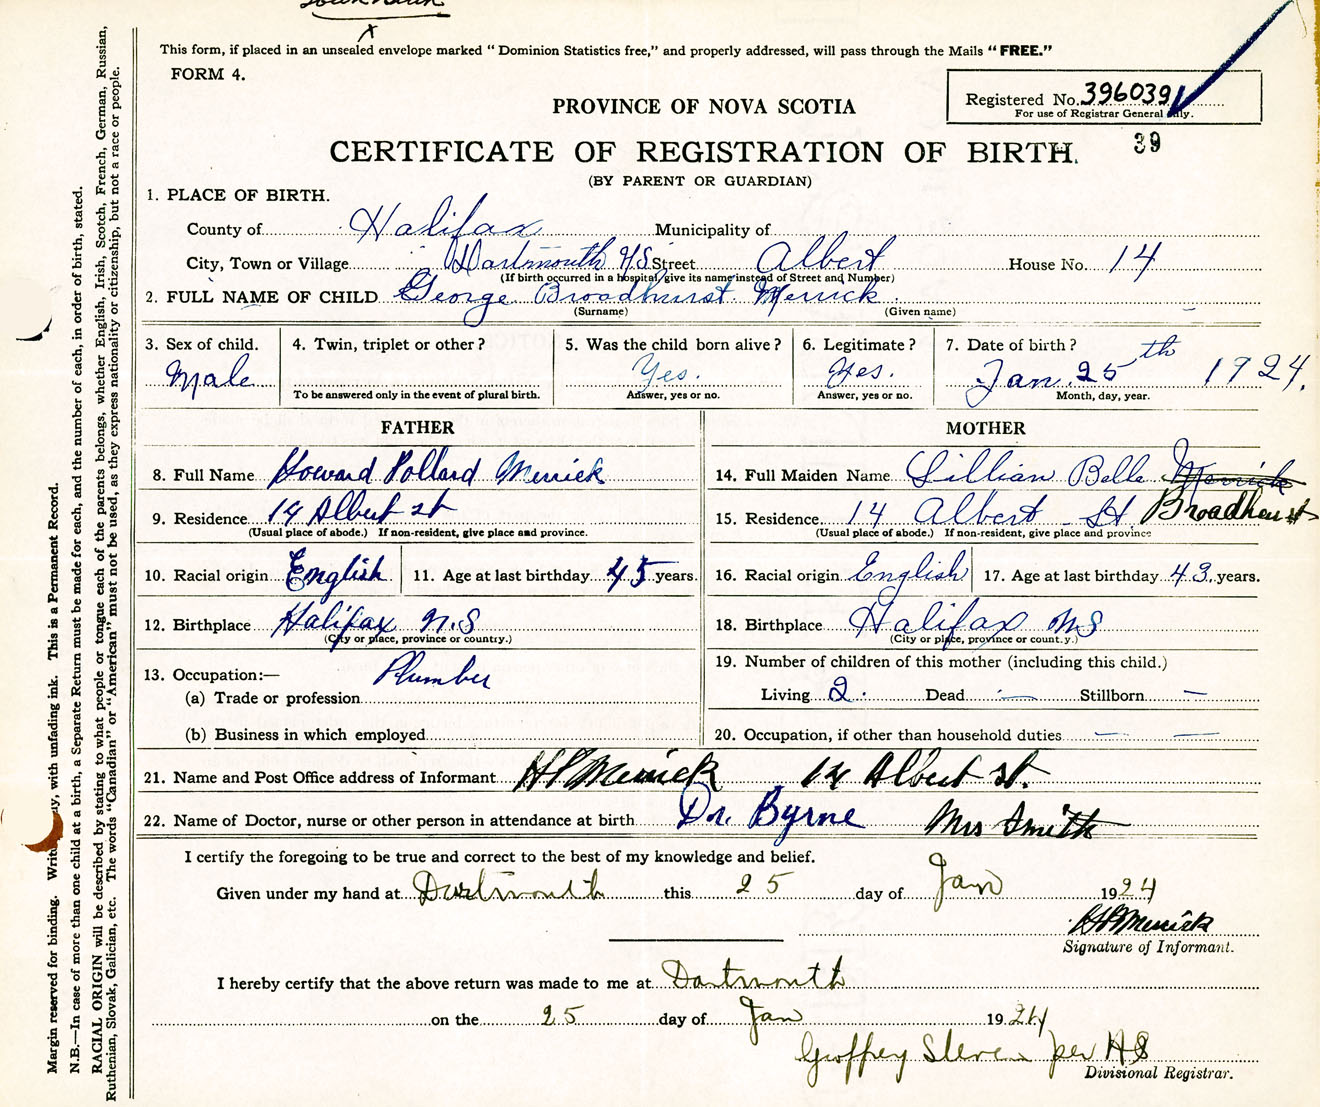 This form, if placed in an unsealed envelope marked "Dominion Statistics free," and properly addressed, will pass through the Mails "FREE."
FORM 4.
Registered No. 396039
For use of Registrar General only.
PROVINCE OF NOVA SCOTIA
39
CERTIFICATE OF REGISTRATION OF BIRTH.
(BY PARENT OR GUARDIAN)
1. PLACE OF BIRTH.
County of Halifax Municipality of
City, Town or Village Dartmouth N.S. Street Albert House No. 14
(If birth occurred in a hospital, give its name instead of Street and Number)
2. FULL NAME OF CHILD George Broadhurst Merrick
(Surname) (Given name)
3. Sex of child. 4. Twin, triplet or other? 5. Was the child born alive? 6. Legitimate? 7. Date of birth?
Male Yes. Yes. Jan. 25th 1924.
To be answered only in the event of plural birth. Answer, yes or no. Answer, yes or no. Month, day, year.
FATHER
8. Full Name Howard Pollard Merrick
9. Residence 14 Albert St
(Usual place of abode.) If non-resident, give place and province.
10. Racial origin English 11. Age at last birthday 45 years.
12. Birthplace Halifax N.S
(City or place, province or country.)
13. Occupation:— Plumber
(a) Trade or profession
(b) Business in which employed
MOTHER
14. Full Maiden Name Lillian Belle Merrick
Broadhurst
15. Residence 14 Albert St.
(Usual place of abode.) If non-resident, give place and province
16. Racial origin English 17. Age at last birthday 43. years.
18. Birthplace Halifax NS
(City or place, province or country.)
19. Number of children of this mother (including this child.)
Living 2. Dead — Stillborn —
20. Occupation, if other than household duties — —
21. Name and Post Office address of Informant HP Merrick 14 Albert St.
22. Name of Doctor, nurse or other person in attendance at birth Dr. Byrne Mrs Smith
I certify the foregoing to be true and correct to the best of my knowledge and belief.
Given under my hand at Dartmouth this 25 day of Jan 1924
HP Merrick
Signature of Informant.
I hereby certify that the above return was made to me at Dartmouth
on the 25 day of Jan 1924
Geoffrey Steven per HS
Divisional Registrar.
Margin reserved for binding. Write plainly, with unfading ink. This is a Permanent Record.
N.B.—In case of more than one child at a birth, a Separate Return must be made for each, and the number of each, in order of birth, stated.
RACIAL ORIGIN will be described by stating to what people or tongue each of the parents belongs, whether English, Irish, Scotch, French, German, Russian,
Ruthenian, Slovak, Galician, etc. The words "Canadian" or "American" must not be used, as they express nationality or citizenship, but not a race or people.